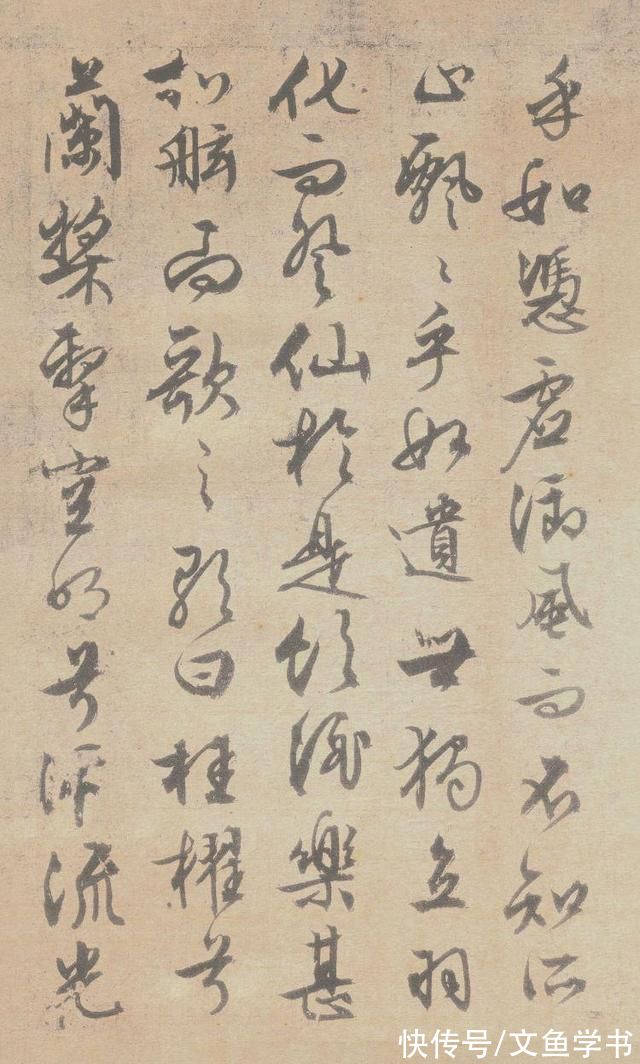 乎如憑虛御風而不知所
止飄〻乎如遺世獨立羽
化而登仙於是飲酒樂甚
扣舷而歌之歌曰桂櫂兮
蘭槳擊空明兮泝流光
快传号/文鱼学书